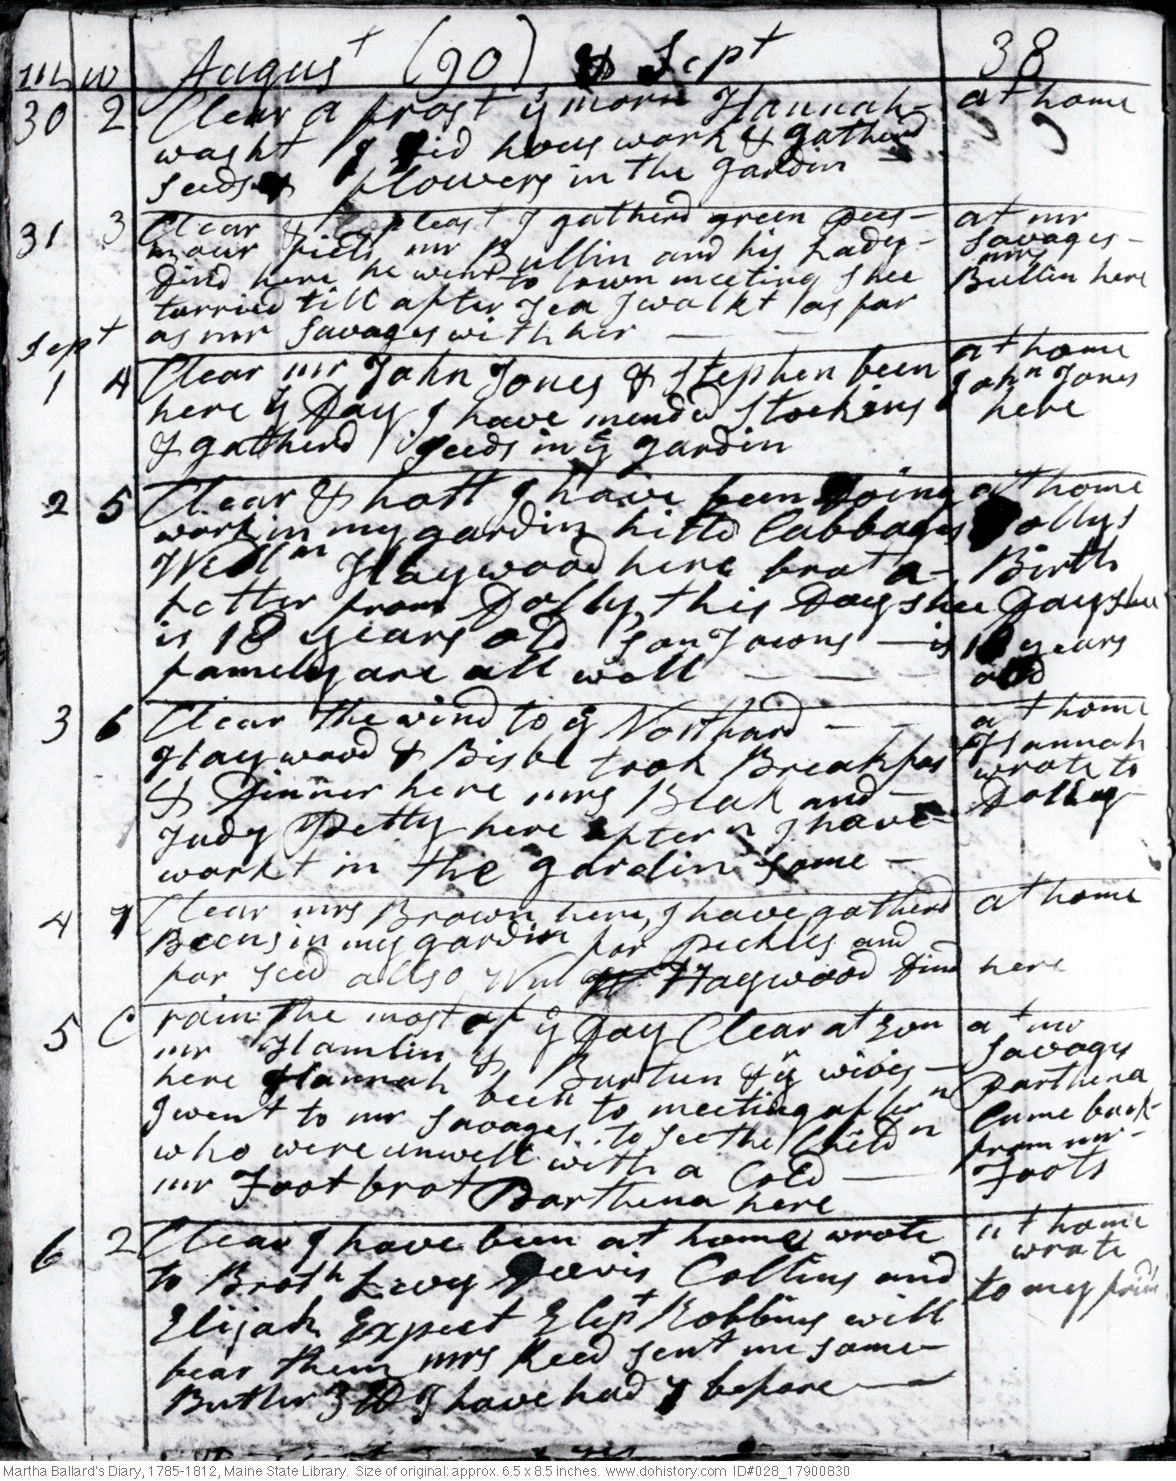 m w August (90) & Sept 38
30 2 Clear a frost ÿ morn Hannah at home
washt I did hous work & gatherd
seeds & flowers in the gardin
31 3 Clear & pleast I gatherd green pees at mr
in our field mr Bullin and his Lady Savages
dind here he went to town meeting shee mrs
tarried till after Tea I walkt as far Bullin here
as mr Savages with her
Sept
1 4 Clear mr John Jones & Stephen been at home
here ÿ Day I have mended Stockins Johⁿ Jones
& gatherd seeds in ÿ gardin here
2 5 Clear & hott I have been Doing at home
work in my gardin hilld Cabbages Dollys
Willᵐ Haywood here brot a Birth
letter from Dolly, this Day shee Day shee
is 18 years old Son Towns is 18 years
family are all well old
3 6 Clear the wind to ÿ Northard at home
Haywood & Bisbe took Breakfast Hannah
& Dinner here mrs Blak and wrote to
Judy Petty here afterⁿ I have Dolley
workt in the gardin some
4 7 Clear mrs Brown here, I have gatherd at home
Beens in my gardin for peckles and
for seed allso Wm Haywood Dind here
5 C rain the most of ÿ Day Clear at Evn at mr
mr Hamlin & Burtun & ÿ wives Savages
here Hannah been to meeting afterⁿ Parthena
I went to mr Savages to see the Childⁿ Came back
who were unwell with a Cold from mr
mr Foot brot Parthena here Foots
6 2 Clear I have been at home, wrote at home
to Brothʳ Levy Davis Collins and wrote
Elijah Expect Elipᵗ Robbins will to my frinds
bear them mrs Reed sent me some
Butter 3 lb I have had 7 before
Martha Ballard's Diary, 1785-1812, Maine State Library. Size of original: approx. 6.5 x 8.5 inches. www.dohistory.com ID#028_17900830